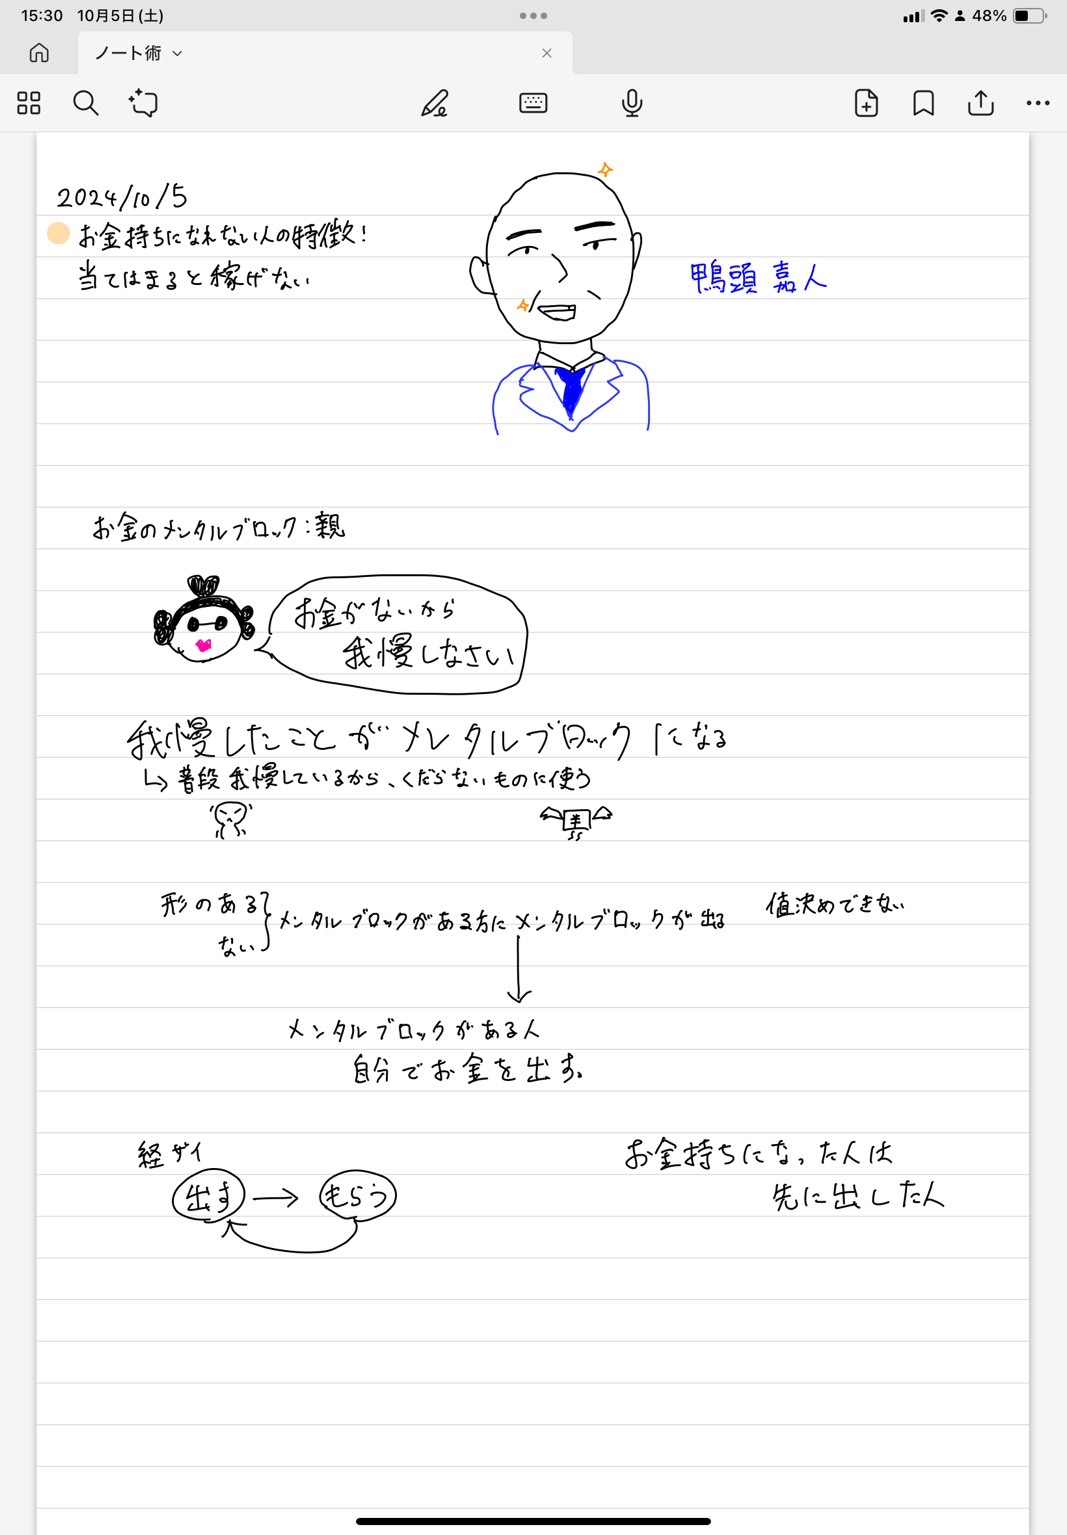 15:30 10月5日(土)
48%
ノート術
2024/10/5
お金持ちになれない人の特徴!
当てはまると稼げない
鴨頭 嘉人
お金のメンタルブロック:親
お金がないから
我慢しなさい
我慢したことがメンタルブロックになる
↳普段我慢しているから、くだらないものに使う
形のある
ない
メンタルブロックがある方にメンタルブロックが出る
値決めできない
メンタルブロックがある人
自分でお金を出す。
経ザイ
出す → もらう
お金持ちになった人は
先に出した人